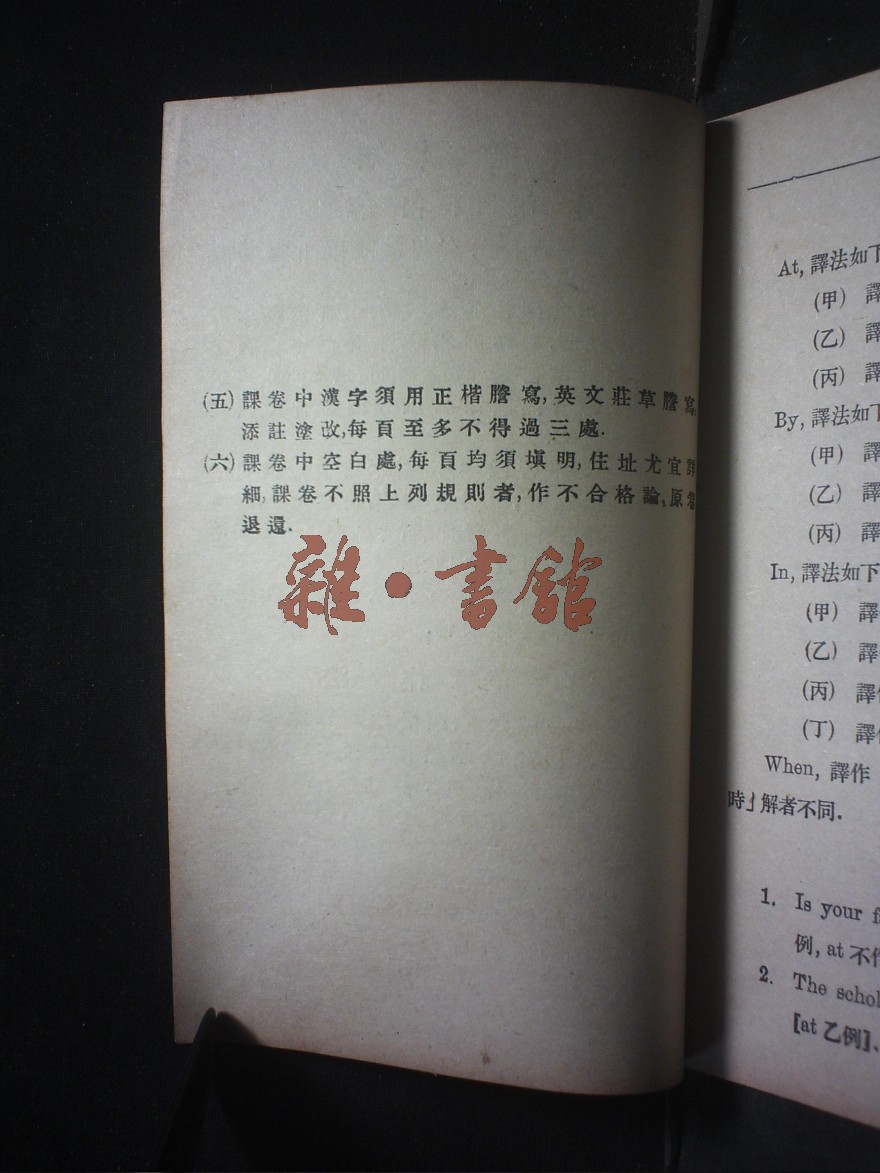 (五) 課卷中漢字須用正楷謄寫, 英文莊草謄寫,
添註塗改, 每頁至多不得過三處.
(六) 課卷中空白處, 每頁均須塡明, 住址尤宜詳
細, 課卷不照上列規則者, 作不合格論, 原卷
退還.
雜·書館
At, 譯法如下
(甲) 譯
(乙) 譯
(丙) 譯
By, 譯法如下
(甲) 譯
(乙) 譯
(丙) 譯
In, 譯法如下
(甲) 譯
(乙) 譯
(丙) 譯作
(丁) 譯作
When, 譯作
時」解者不同.
1. Is your
例, at 不作
2. The
[at 乙例].